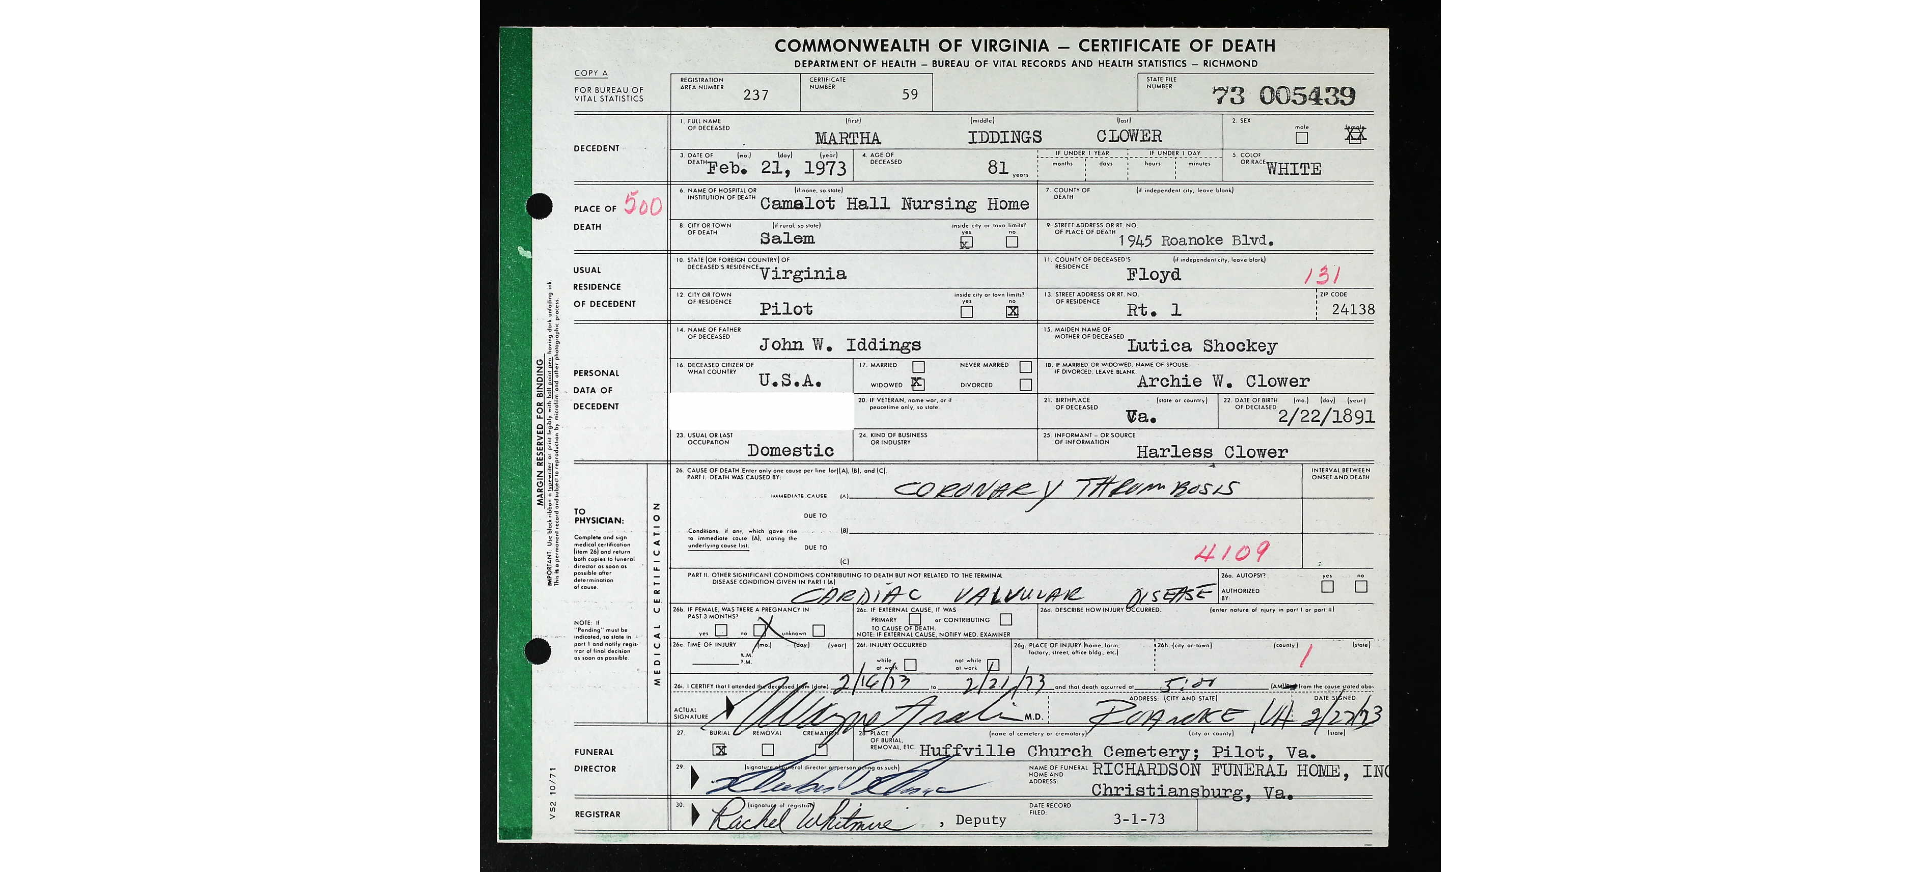 COMMONWEALTH OF VIRGINIA — CERTIFICATE OF DEATH
DEPARTMENT OF HEALTH — BUREAU OF VITAL RECORDS AND HEALTH STATISTICS — RICHMOND
COPY A
FOR BUREAU OF
VITAL STATISTICS
REGISTRATION
AREA NUMBER 237
CERTIFICATE
NUMBER 59
STATE FILE
NUMBER 73 005439
DECEDENT
1. FULL NAME
OF DECEASED
(first) (middle) (last)
MARTHA IDDINGS CLOWER
2. SEX
male female XX
3. DATE OF
DEATH (mo.) (day) (year)
Feb. 21, 1973
4. AGE OF
DECEASED
81 years
IF UNDER 1 YEAR IF UNDER 1 DAY
months days hours minutes
5. COLOR
OR RACE WHITE
PLACE OF
DEATH
500
6. NAME OF HOSPITAL OR (if none, so state)
INSTITUTION OF DEATH Camalot Hall Nursing Home
7. COUNTY OF (if independent city, leave blank)
DEATH
8. CITY OR TOWN (if rural, so state)
OF DEATH
Salem
inside city or town limits?
yes no
X
9. STREET ADDRESS OR RT. NO.
OF PLACE OF DEATH 1945 Roanoke Blvd.
USUAL
RESIDENCE
OF DECEDENT
10. STATE (OR FOREIGN COUNTRY) OF
DECEASED'S RESIDENCE Virginia
11. COUNTY OF DECEASED'S (if independent city, leave blank)
RESIDENCE
Floyd 131
12. CITY OR TOWN
OF RESIDENCE
Pilot
inside city or town limits?
yes no
X
13. STREET ADDRESS OR RT. NO.
OF RESIDENCE
Rt. 1
ZIP CODE
24138
PERSONAL
DATA OF
DECEDENT
14. NAME OF FATHER
OF DECEASED
John W. Iddings
15. MAIDEN NAME OF
MOTHER OF DECEASED Lutica Shockey
16. DECEASED CITIZEN OF
WHAT COUNTRY
U.S.A.
17. MARRIED NEVER MARRIED
WIDOWED X DIVORCED
18. IF MARRIED OR WIDOWED, NAME OF SPOUSE
IF DIVORCED, LEAVE BLANK
Archie W. Clower
20. IF VETERAN, name war, or if
peacetime only, so state.
21. BIRTHPLACE (state or country)
OF DECEASED
Va.
22. DATE OF BIRTH (mo.) (day) (year)
OF DECEASED 2/22/1891
23. USUAL OR LAST
OCCUPATION
Domestic
24. KIND OF BUSINESS
OR INDUSTRY
25. INFORMANT – OR SOURCE
OF INFORMATION
Harless Clower
TO
PHYSICIAN:
Complete and sign
medical certification
(item 26) and return
both copies to funeral
director as soon as
possible after
determination
of cause.
NOTE: If
"Pending" must be
indicated, so state in
part I and notify regis-
trar of final decision
as soon as possible.
MEDICAL CERTIFICATION
26. CAUSE OF DEATH Enter only one cause per line for (A), (B), and (C).
PART I. DEATH WAS CAUSED BY:
INTERVAL BETWEEN
ONSET AND DEATH
IMMEDIATE CAUSE (A) CORONARY THROMBOSIS
DUE TO
Conditions, if any, which gave rise
to immediate cause (A), stating the
underlying cause last.
(B)
DUE TO
4109
(C)
PART II. OTHER SIGNIFICANT CONDITIONS CONTRIBUTING TO DEATH BUT NOT RELATED TO THE TERMINAL
DISEASE CONDITION GIVEN IN PART I (A)
CARDIAC VALVULAR DISEASE
26a. AUTOPSY? yes no
AUTHORIZED
BY:
26b. IF FEMALE, WAS THERE A PREGNANCY IN
PAST 3 MONTHS?
yes no unknown
26c. IF EXTERNAL CAUSE, IT WAS
PRIMARY or CONTRIBUTING
TO CAUSE OF DEATH.
NOTE: IF EXTERNAL CAUSE, NOTIFY MED. EXAMINER
26d. DESCRIBE HOW INJURY OCCURRED. (enter nature of injury in part I or part II)
26e. TIME OF INJURY (mo.) (day) (year)
A.M.
P.M.
26f. INJURY OCCURRED
while
at work
not while
at work
26g. PLACE OF INJURY (home, farm,
factory, street, office bldg., etc.)
26h. (city or town) (county) (state)
1
26i. I CERTIFY that I attended the deceased from (date) 2/16/73 to 2/21/73 and that death occurred at 5:00 (AM) from the cause stated above
ACTUAL
SIGNATURE
Wayne
M.D.
ADDRESS: (CITY AND STATE)
ROANOKE, VA
DATE SIGNED
2/22/73
FUNERAL
DIRECTOR
27. BURIAL REMOVAL CREMATION
X
28. PLACE
OF BURIAL,
REMOVAL, ETC.
(name of cemetery or crematory) (city or county) (state)
Huffville Church Cemetery; Pilot, Va.
29. (signature of funeral director or person acting as such)
NAME OF FUNERAL
HOME AND
ADDRESS:
RICHARDSON FUNERAL HOME, INC
Christiansburg, Va.
REGISTRAR
30. (signature of registrar)
Rachel Whitmire, Deputy
DATE RECORD
FILED:
3-1-73
MARGIN RESERVED FOR BINDING
VS2 10/71